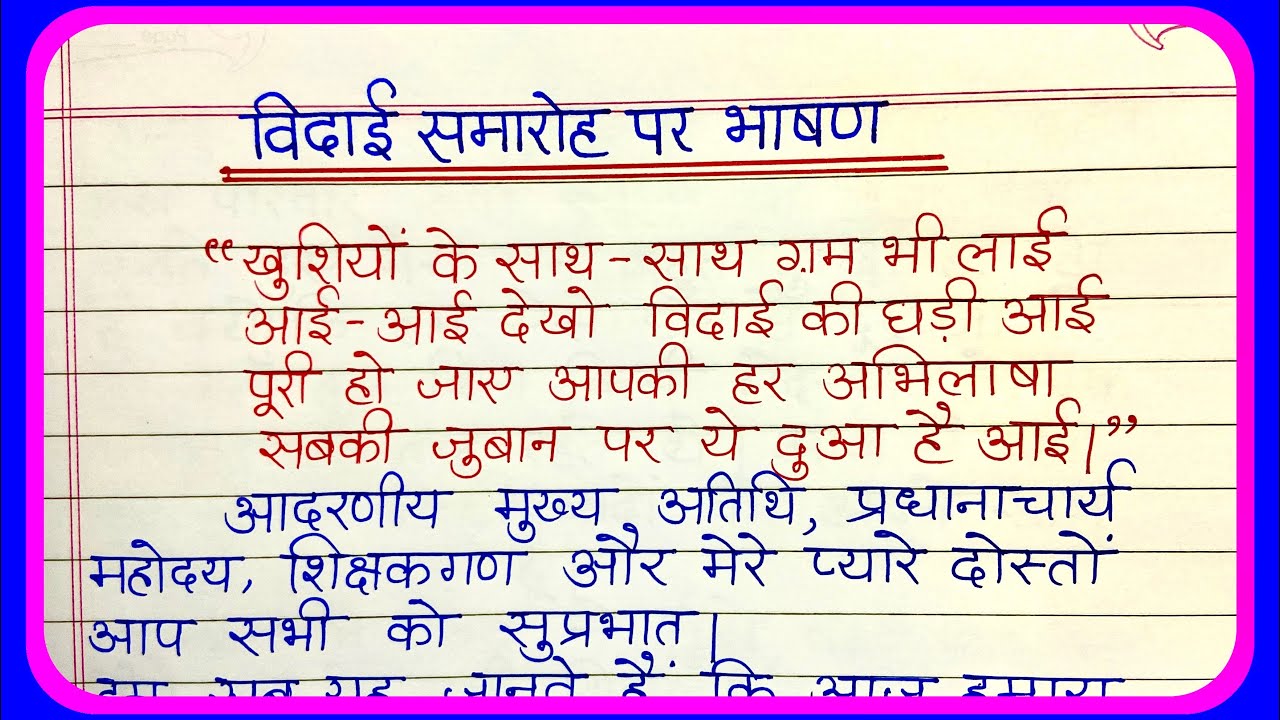 विदाई समारोह पर भाषण
“खुशियों के साथ-साथ ग़म भी लाई
आई-आई देखो विदाई की घड़ी आई
पूरी हो जाए आपकी हर अभिलाषा
सबकी जुबान पर ये दुआ है आई।”
आदरणीय मुख्य अतिथि, प्रधानाचार्य
महोदय, शिक्षकगण और मेरे प्यारे दोस्तों
आप सभी को सुप्रभात।
हम सब यह जानते हैं कि आज हमारा